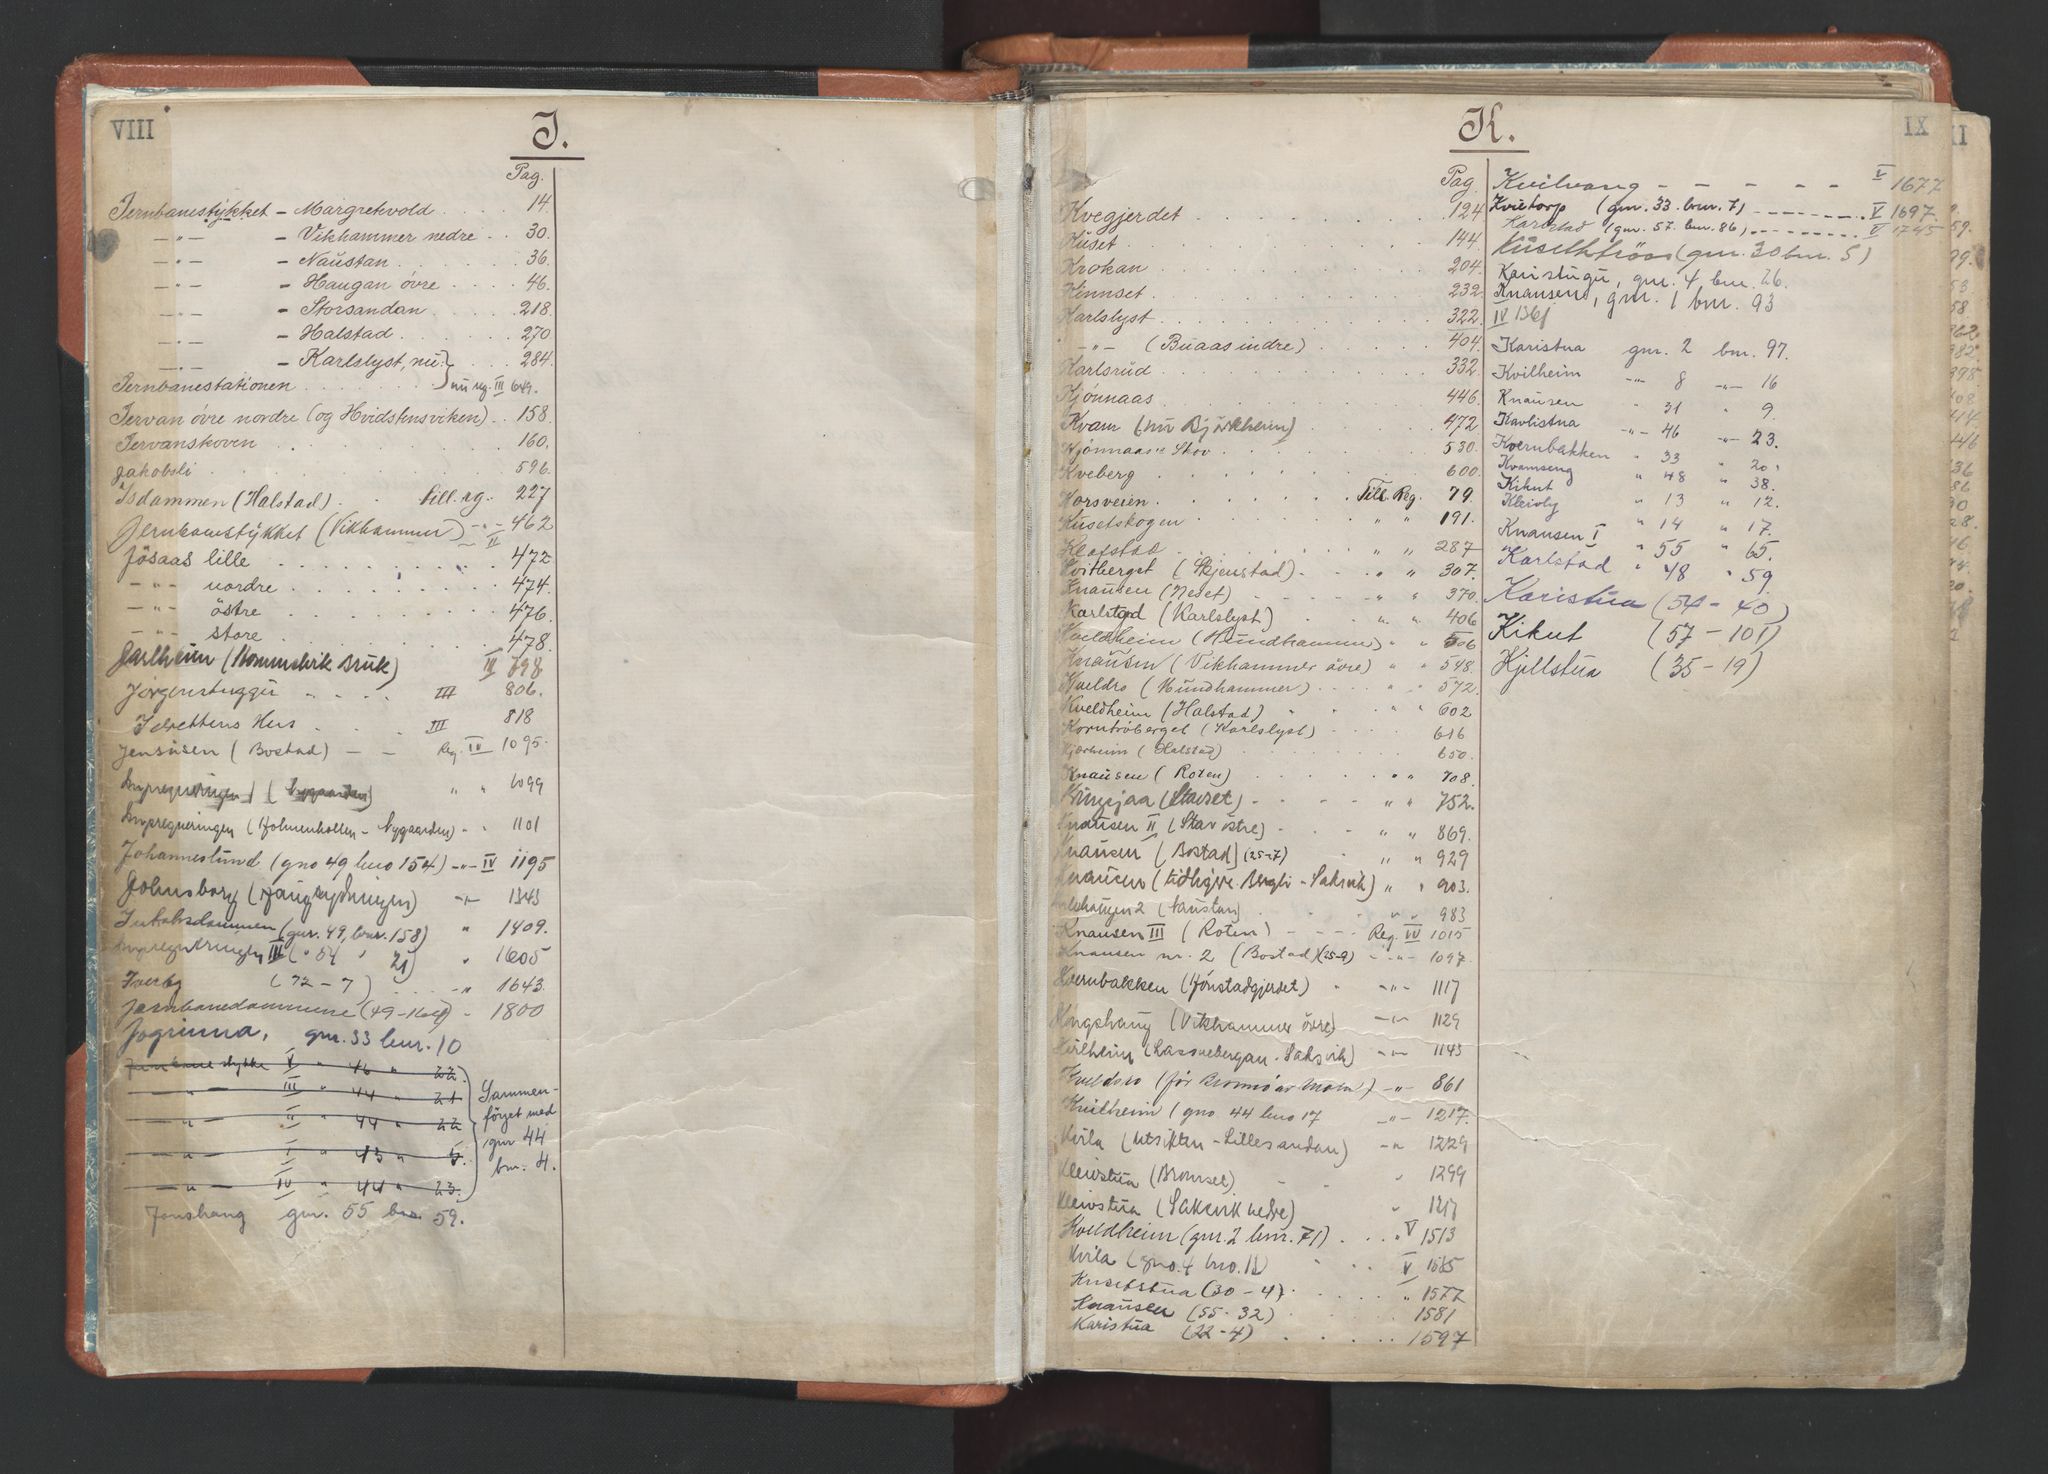 VIII
J.
Pag.
Jernbanestykket - Margretevold . . . . 14.
-"- - Vikhammer nedre . . 30.
-"- - Naustan . . . . 36.
-"- - Haugan övre . . . . 46.
-"- - Storsandan . . . . 218.
-"- - Halstad . . . . 270
-"- - Karlslyst, nu } . . 284.
Jernbanestationen . . . . } nu reg. III 649.
Jervan övre nordre (og Hvidstensviken) . . 158.
Jervanskoven . . . . 160.
Jakobsli . . . . 596.
Isdammen (Halstad) . . Till. rg. 227
Jernbanestykket (Vikhammer) -"- II 462
Jösaas lille . . . . 472
-"- nordre . . . . 474.
-"- östre . . . . 476.
-"- store . . . . 478.
Jarlheim (Hommelvik Bruk) III 798
Jörgenstuggu . . . . III 806.
Idrettens Hus . . . III 818
Jensåsen (Bostad) - - Reg. IV 1095.
Impregneringen " " 1099
Impregneringen (Holmenhollen - Nygaarden) " 1101
Johanneslund (gno 49 bno 154) -"- IV 1195
Johnsborg -"- 1343
Inntaksdammen (gnr. 49, bnr. 158) " 1409.
Impregneringen III (" 54 " 21) " 1605
Iverby (72-7) . . . " 1643.
Jernbanedammene (49-164) - 1800
Jogrinna, gnr. 33 bnr. 10
Jernbanestykke V " 46 " 22.
-"- III " 44 " 21
-"- II " 44 " 22
-"- I " 43 " 5.
-"- IV " 44 " 23.
Sammen-
föyet med
gnr 44
bnr. 4.
Jonshaug gnr. 55 bnr 59.
IX
K.
Pag.
Kvegjerdet . . . . 124
Kuset . . . . 144.
Krokan . . . . 204.
Kinnset . . . . 232.
Karlslyst . . . . 322.
-"- (Buaas indre) . . . . 404.
Karlsrud . . . . 332.
Kjönnaas . . . . 446.
Kvam (nu Björkheim) . . . . 472
Kjönnaas Skov . . . . 530.
Kveberg . . . . 600.
Korsveien . . . . Till. Reg. 79.
Kusetskogen . . . . " " 191.
Klefstad . . . . " " 287
Kvitberget (Skjenstad) . . " " 307.
Knausen (Neset) . . . . " " 370.
Karlstad (Karlslyst) . . " " 406
Kveldheim (Hundhammer) " " 506
Knausen (Vikhammer övre) " " 548.
Kveldro (Hundhammer) . . . . " " 572.
Kveldheim (Halstad) " " " 602
Korntröberget (Karlslyst) . . . . 616
Kjærheim (Halstad) . . . . 650.
Knausen (Roten) . . . . " " 708.
Kringsjaa (Stavset) . . . . " " 752.
Knausen II (Stav östre) . . " " 869.
Knausen (Bostad) (25-7) " " 929
Knausen (tidligere Bergli - Saksvik) " " 903.
(Naustan) . . . " " 983
Knausen III (Roten) - - - Reg. IV 1015
Knausen nr. 2 (Bostad) (25-9) -"- 1097.
Kvernbakken (Jönstadgjerdet) " -"- 1117
Kongshaug (Vikhammer övre) -"- 1129
Kvilheim (Lassebergan - Saksvik) -"- 1143
Kveldsro -"- 861
Kvilheim (gno 44 bno 17 -"- 1217.
Kvila (Utsikten - Lillesandan) -"- 1229
Kleivstua (Bromset) - - " 1299
Kleivstua (Saksvik nedre) " 1317
Kveldheim (gnr. 2 bnr. 71) . . . " V 1513
Kvila V
Kusetstua (30-4) . . . . " 1577
Knausen (55-32) . . . . 1581
Karistua (22-4) . . . . 1597
Kvilvang - - - - - V 1677
Kvietorp (gnr. 33. bnr. 7) - - - - V 1697.
Karlstad (gnr. 57. bnr. 86) - - - - V 1745
Kusethtröa (gnr. 30 bnr. 5)
Karistugu, gnr. 4, bnr. 26.
Knausen, gnr. 1 bnr. 93
IV 1361
Karistua gnr. 2 bnr. 97.
Kvilheim -"- 8 -"- 16
Knausen " 31 " 9.
Kavlistua -"- 46 -"- 23.
Kvernbakken " 33 " 20.
Kvamseng " 48 " 38.
Kikut " 13 " 12.
Kleivly " 14 " 17.
Knausen I " 55 " 65.
Karlstad " 48 " 59.
Karistua (54-40)
Kikut (57-101)
Kjellstua (35-19)